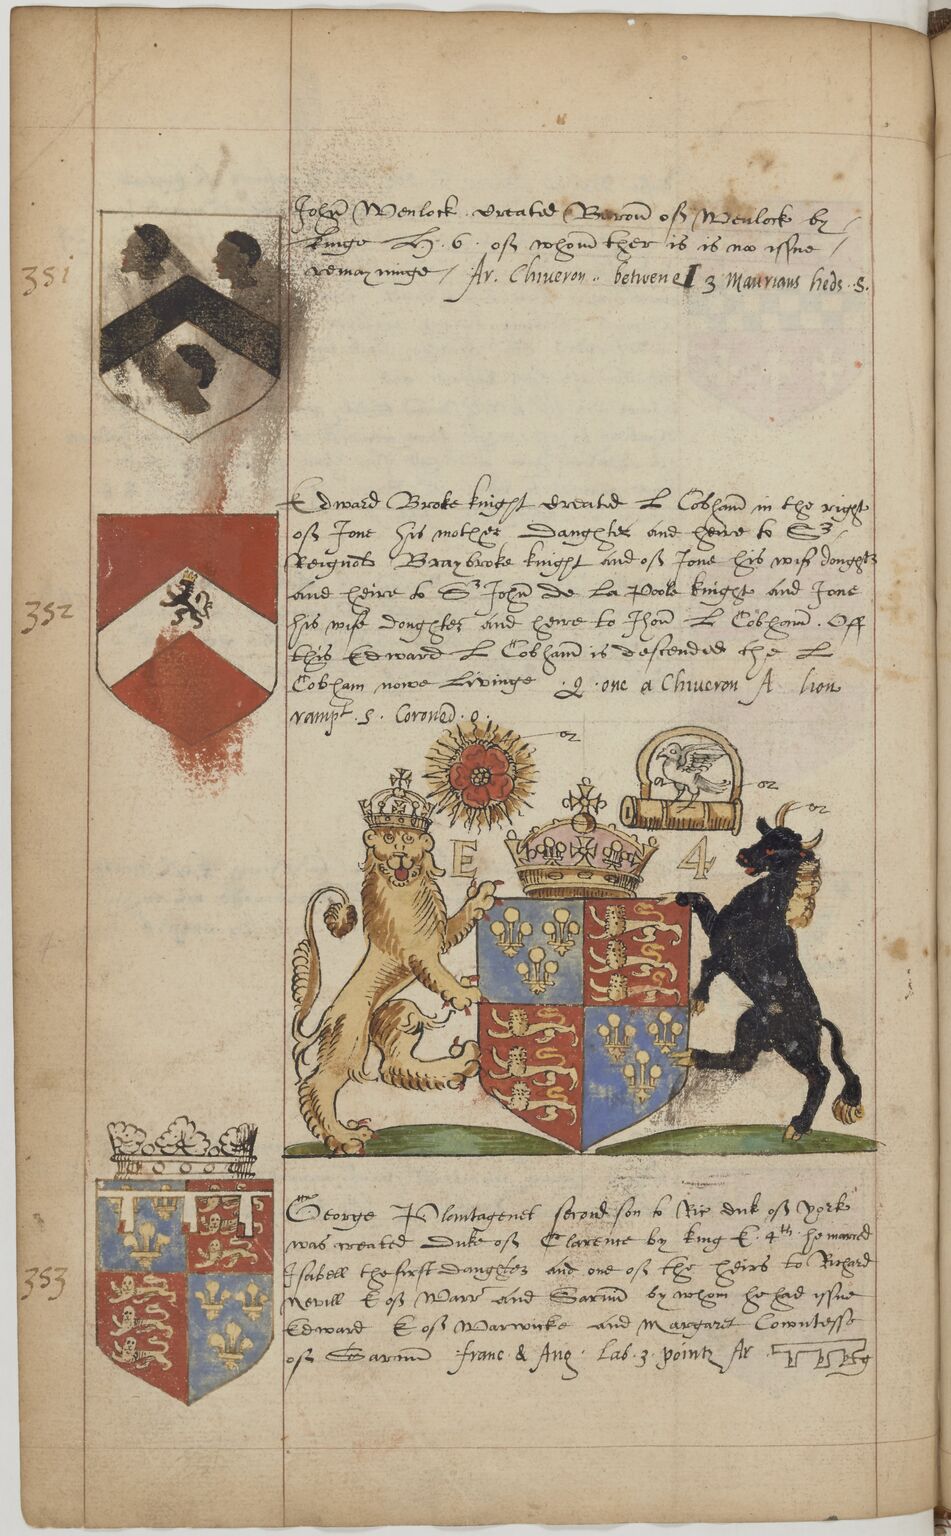 351
John Wenlock created Baron of Wenlock by
kinge H. 6. of whom ther is is noo issue
remayninge Ar. Chiveron betwene 3 Maurians heds .S.
352
Edward Broke knight created L Cobham in the right
of Jone his mother Daughter and heire to Sr
Reignold Braybroke knight and of Jone his wife doughter
and heire to Sr John De La Poole knight and Jone
his wife doughter and heire to Jhon L Cobham. Off
this Edward L Cobham is descended the L
Cobham nowe Livinge . G. one a Chiveron A lion
rampt .S. Coroned .o.
or
or
or
E 4
353
George Plantagenet second son to Ric duk of York
was created Duke of Clarence by king E. 4th. he maried
Isabell the first daughter and one of the heirs to Richard
Nevill E of Warr and Sarum by whom he had issue
Edward E of Warwicke and Margaret Cowntesse
of Sarum franc & Ang. Lab. 3. pointz Ar.